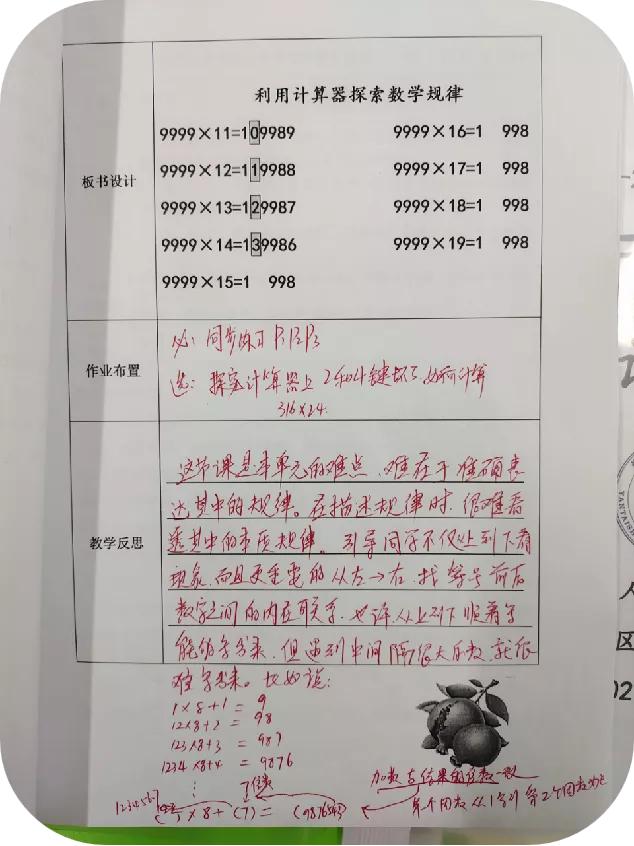 利用计算器探索数学规律
9999×11=109989 9999×16=1 998
9999×12=119988 9999×17=1 998
板书设计
9999×13=129987 9999×18=1 998
9999×14=139986 9999×19=1 998
9999×15=1 998
必：同步练习P1P2P3
作业布置
选：探究计算器上2和4键坏了,如何计算
316×24.
这节课是本单元的难点、难在于准确表
达其中的规律。在描述规律时,很难看
透其中的本质规律。引导同学不仅从上到下看
教学反思
现象,而且更重要的从左→右,找等号前后
数字之间的内在联系.也许,从上到下顺着写
能够写出来,但遇到中间隔很大的数,就很
难写出来。比如说:
1×8+1=9
12×8+2=98
123×8+3=987
1234×8+4=9876
⋮
加数与结果的位数一致
第一个因数从1写到第2个因数
1234567 ×8+(7)=(9876543)
YANTAISH
区
02